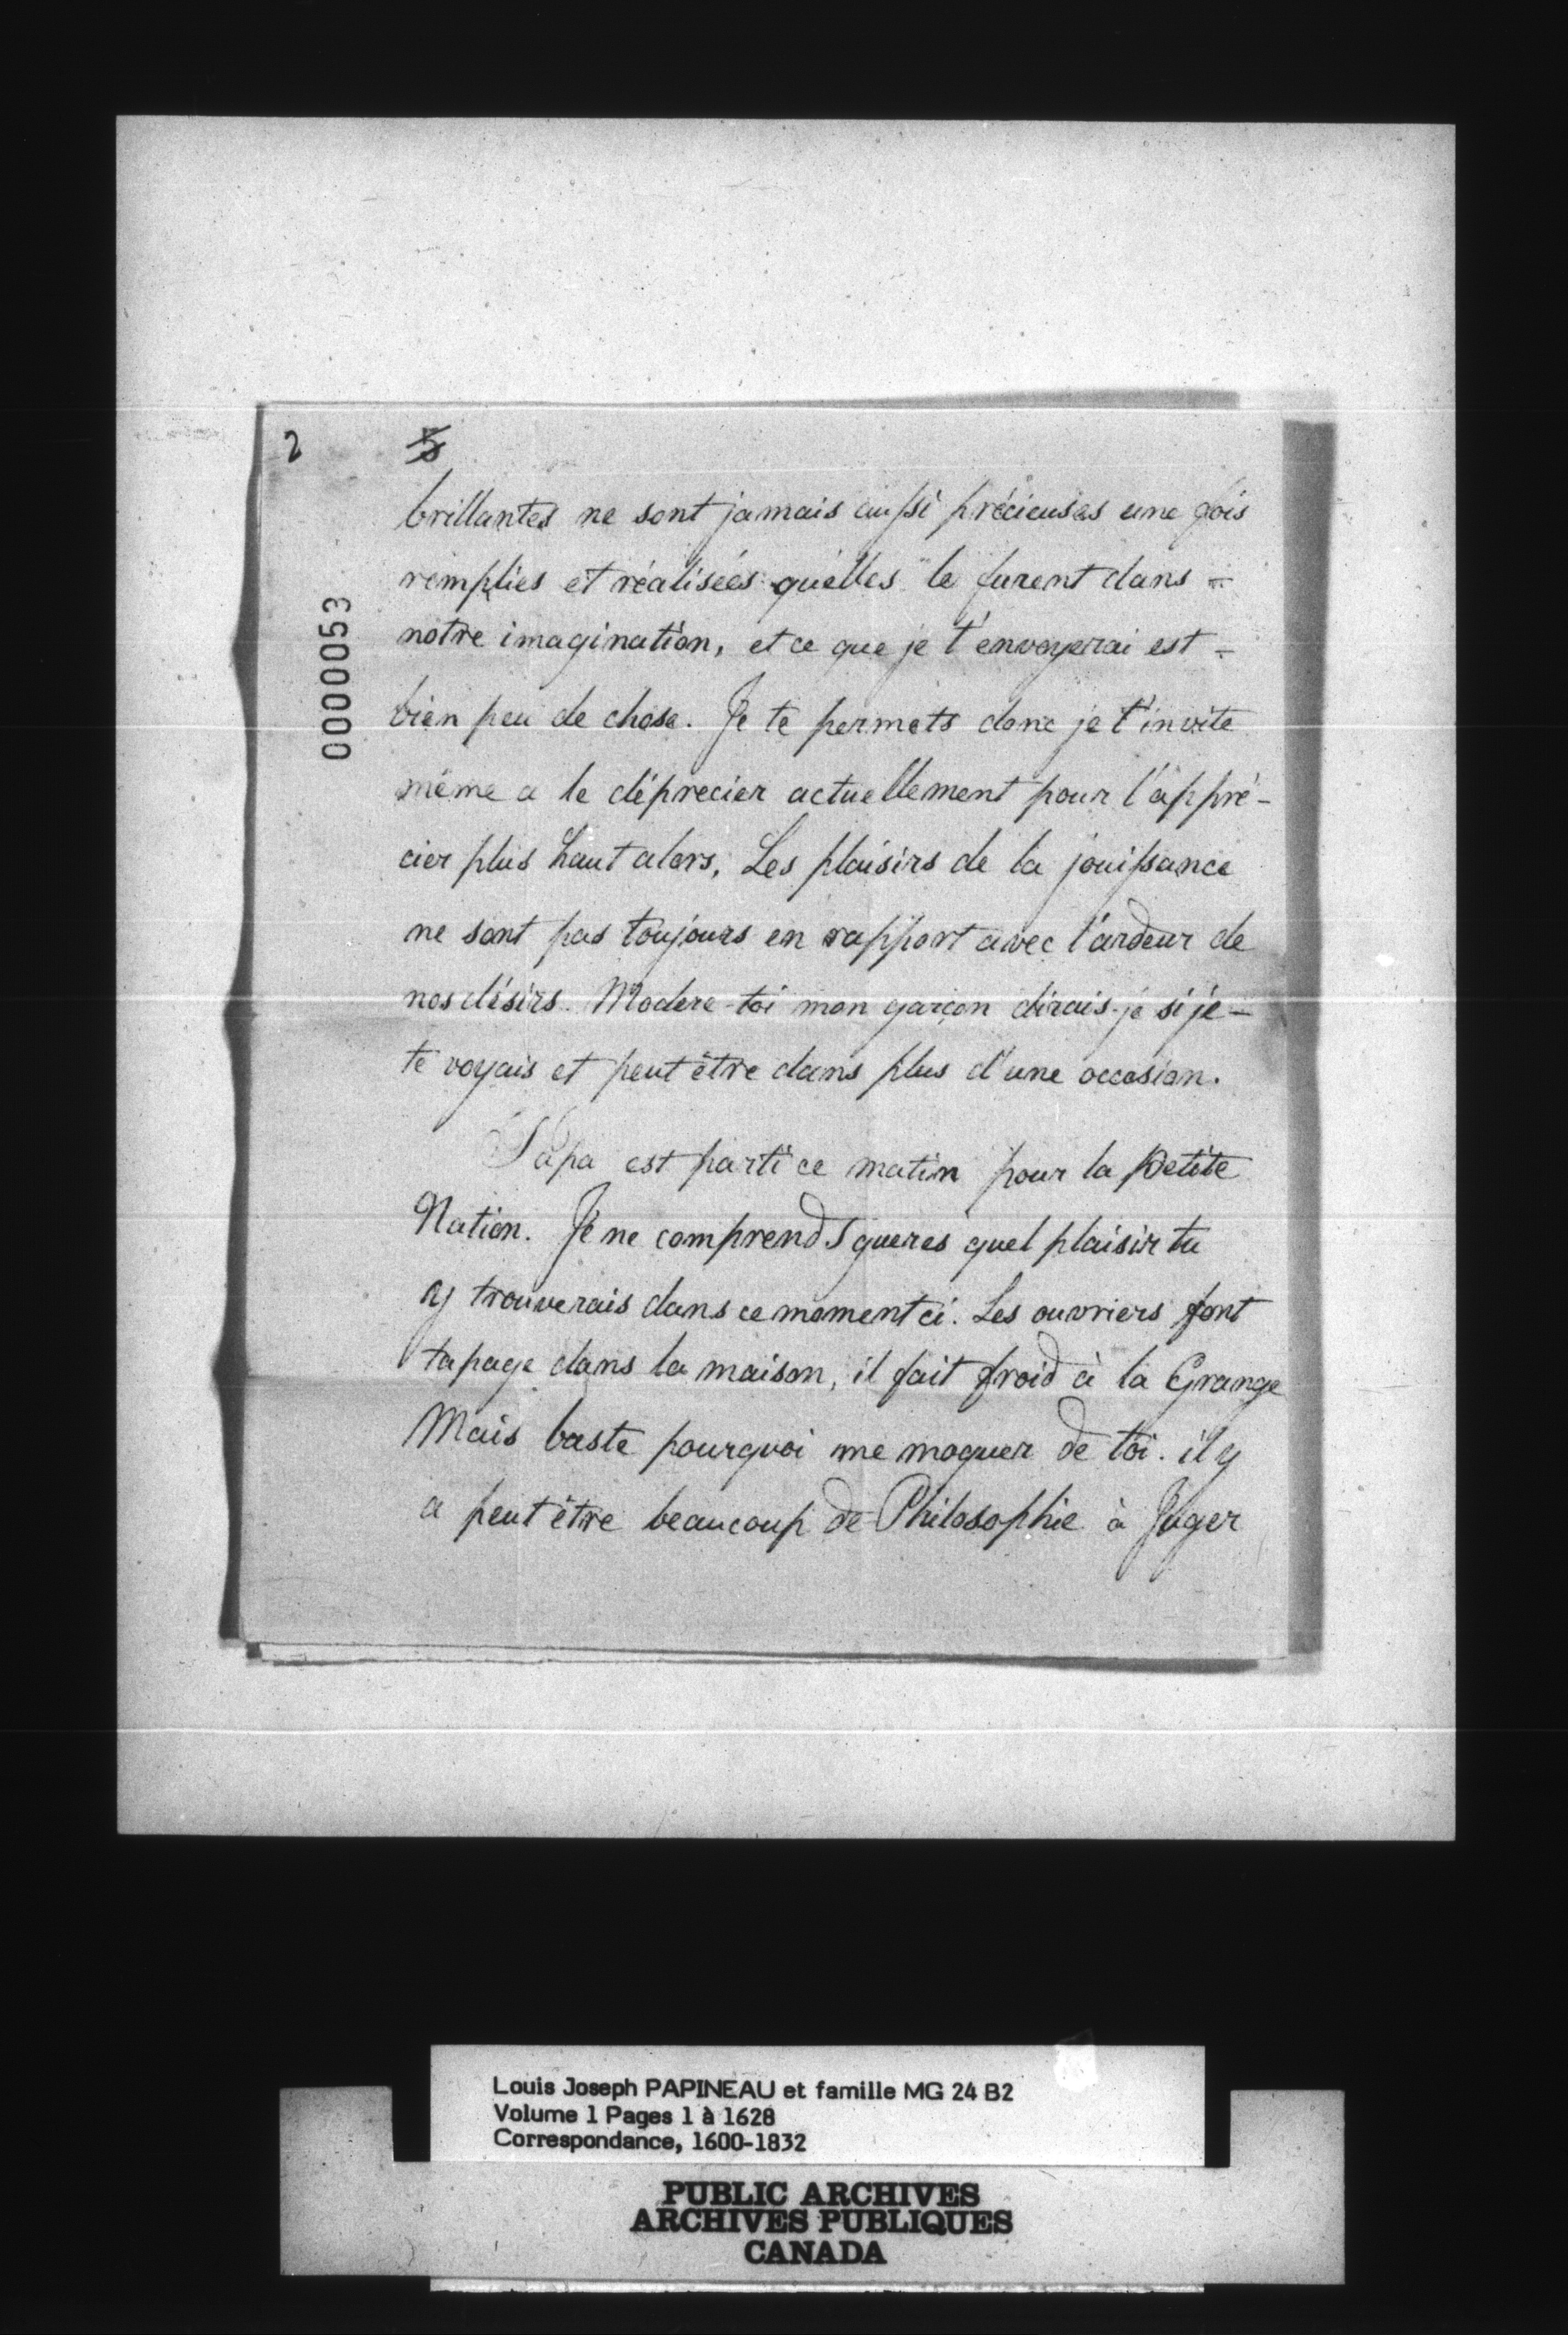 2
0000053
brillantes ne sont jamais aussi précieuses une fois
remplies et réalisées qu'elles le furent dans =
notre imagination, et ce que je t'envoyerai est =
bien peu de chose. Je te permets donc je t'invite
même a le déprecier actuellement pour l'appré-
cier plus haut alors, Les plaisirs de la jouissance
ne sont pas toujours en rapport avec l'ardeur de
nos désirs. Modere-toi mon garçon dirais-je si je -
te voyais et peut être dans plus d'une occasion.
Papa est parti ce matin pour la petite
Nation. Je ne comprends gueres quel plaisir tu
y trouverais dans ce moment ci. Les ouvriers font
tapage dans la maison, il fait froid à la Grange
Mais baste pourquoi me moquer de toi. il y
a peut être beaucoup de Philosophie à Juger
Louis Joseph PAPINEAU et famille MG 24 B2
Volume 1 Pages 1 à 1628
Correspondance, 1600-1832
PUBLIC ARCHIVES
ARCHIVES PUBLIQUES
CANADA